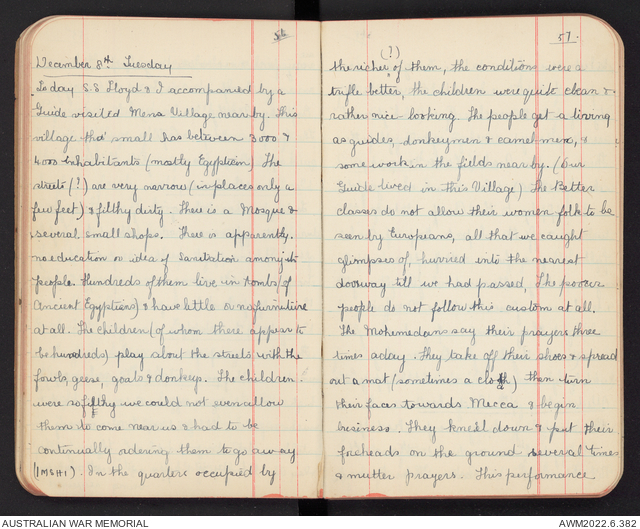 56
December 8th Tuesday
Today S.S Floyd & I accompanied by a
Guide visited Mena Village near by. This
village tho' small has between 3000 &
4000 inhabitants (mostly Egyptian) The
streets (?) are very narrow (in places only a
few feet) & filthy dirty. There is a Mosque &
several small shops. There is apparently
no education or idea of sanitation among its
people. Hundreds of them live in tombs (of
Ancient Egyptians) & have little or no furniture
at all. The children (of whom there appear to
be hundreds) play about the streets with the
fowls, geese, goats & donkeys. The children
were so filthy we could not even allow
them to come near us & had to be
continually ordering them to go away
(IMSHI). In the quarters occupied by
57.
(?)
the richer of them, the conditions were a
trifle better, the children were quite clean &
rather nice looking. The people get a living
as guides, donkeymen & camel-men, &
some work in the fields near by. (Our
Guide lived in this Village) The Better
classes do not allow their women folk to be
seen by Europeans, all that we caught
glimpses of, hurried into the nearest
doorway till we had passed, The poorer
people do not follow this custom at all.
The Mohemedans say their prayers three
times a day. They take off their shoes & spread
out a mat (sometimes a cloth) then turn
their faces towards Mecca & begin
business. They kneel down & put their
foreheads on the ground several times
& mutter prayers. This performance
AUSTRALIAN WAR MEMORIAL
AWM2022.6.382